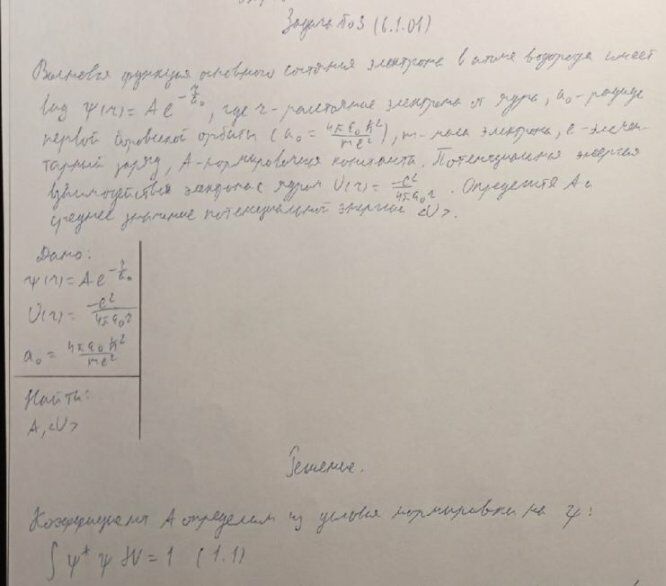 Задача №3 (6.1.01)
Волновая функция основного состояния электрона в атоме водорода имеет
вид ψ(r) = A e^(-r/a₀), где r - расстояние электрона от ядра, a₀ - радиус
первой боровской орбиты (a₀ = 4πε₀ħ²/me²), m - масса электрона, e - элемен-
тарный заряд, A - нормировочная константа. Потенциальная энергия
взаимодействия электрона с ядром U(r) = -e²/4πε₀r. Определите A и
среднее значение потенциальной энергии <U>.
Дано:
ψ(r) = A e^(-r/a₀)
U(r) = -e²/4πε₀r
a₀ = 4πε₀ħ²/me²
Найти:
A, <U>
Решение.
Коэффициент A определим из условия нормировки на ψ:
∫ ψ* ψ dV = 1 (1.1)